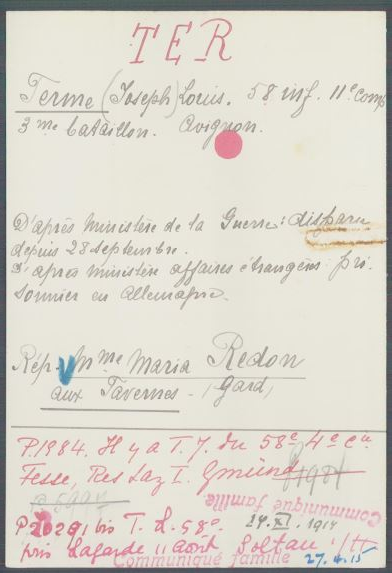 TER
Terme (Joseph) Louis. 58 inf. 11e comp
3me bataillon. Avignon.
D'après Ministère de la Guerre: disparu
depuis 28 septembre.
D'après ministère affaires étrangères pri-
sonnier en Allemagne.
Rép. Mme Maria Redon
aux Tavernes - (Gard)
P.1984. Il y a T. J. du 58e 4e Cie
Fesse, Res Laz I. Gmünd
Communiqué famille
P 20291 bis T. L. 58e 24.XI.1914
pris Lagarde 11 août Soltau
Communiqué famille 27.4.15